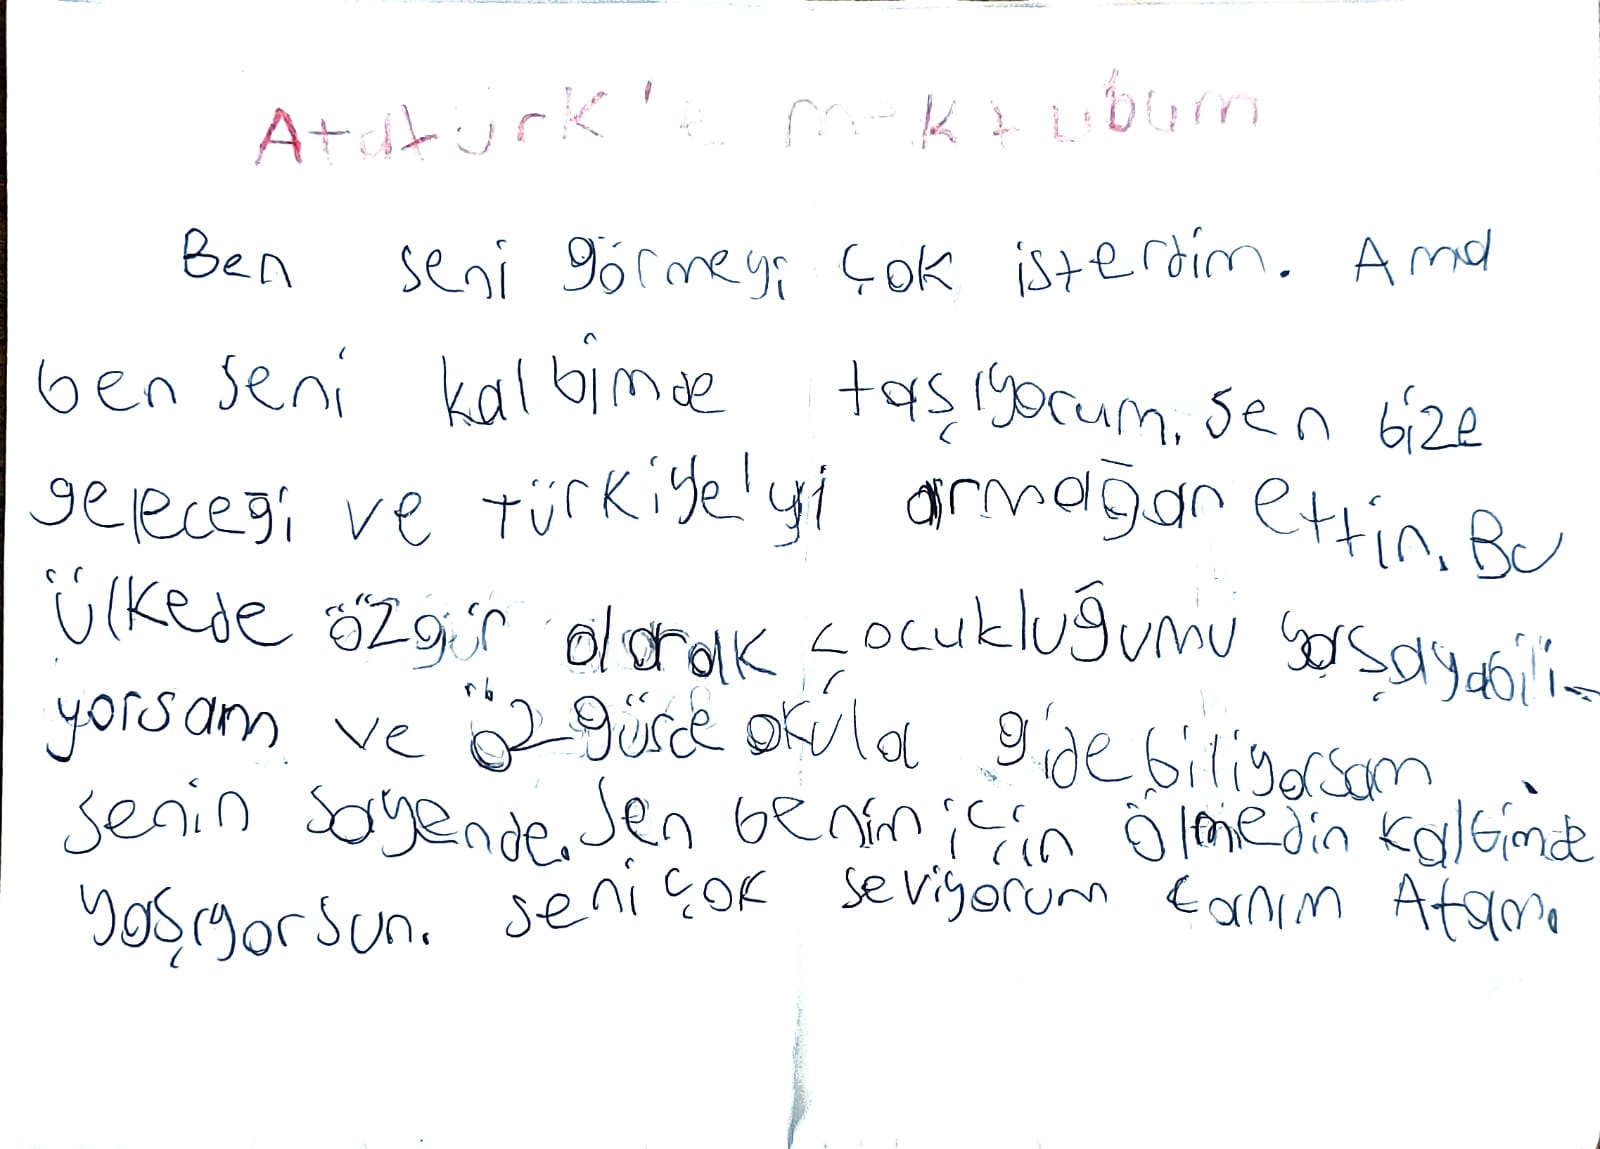 Atatürk'e mektubum
Ben seni görmeyi çok isterdim. Ama
ben seni kalbimde taşıyorum. Sen bize
geleceği ve türkiye'yi armağan ettin. Bu
ülkede özgür olarak çocukluğumu yaşayabili-
yorsam ve özgürce okula gidebiliyorsam
senin sayende. Sen benim için ölmedin kalbimde
yaşıyorsun. seni çok seviyorum canım Atam.